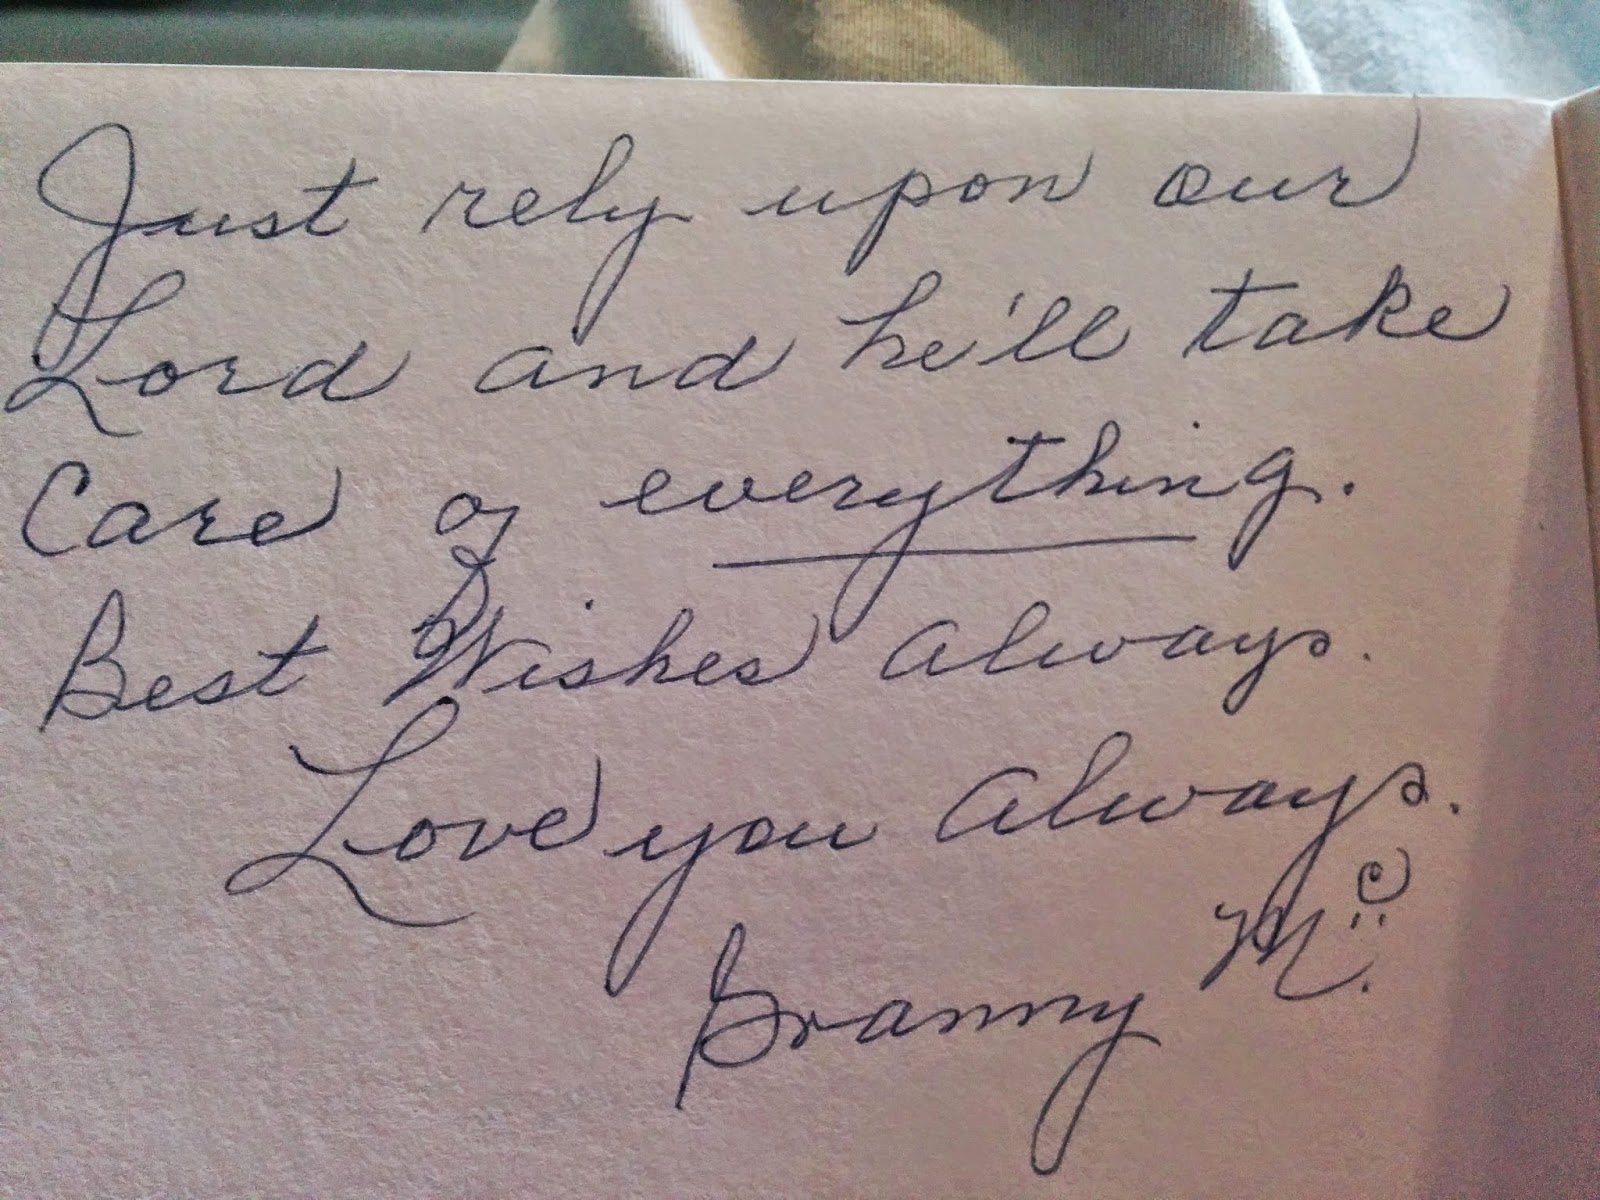 Just rely upon our
Lord and he'll take
Care of everything.
Best Wishes Always.
Love you Always.
Granny M.